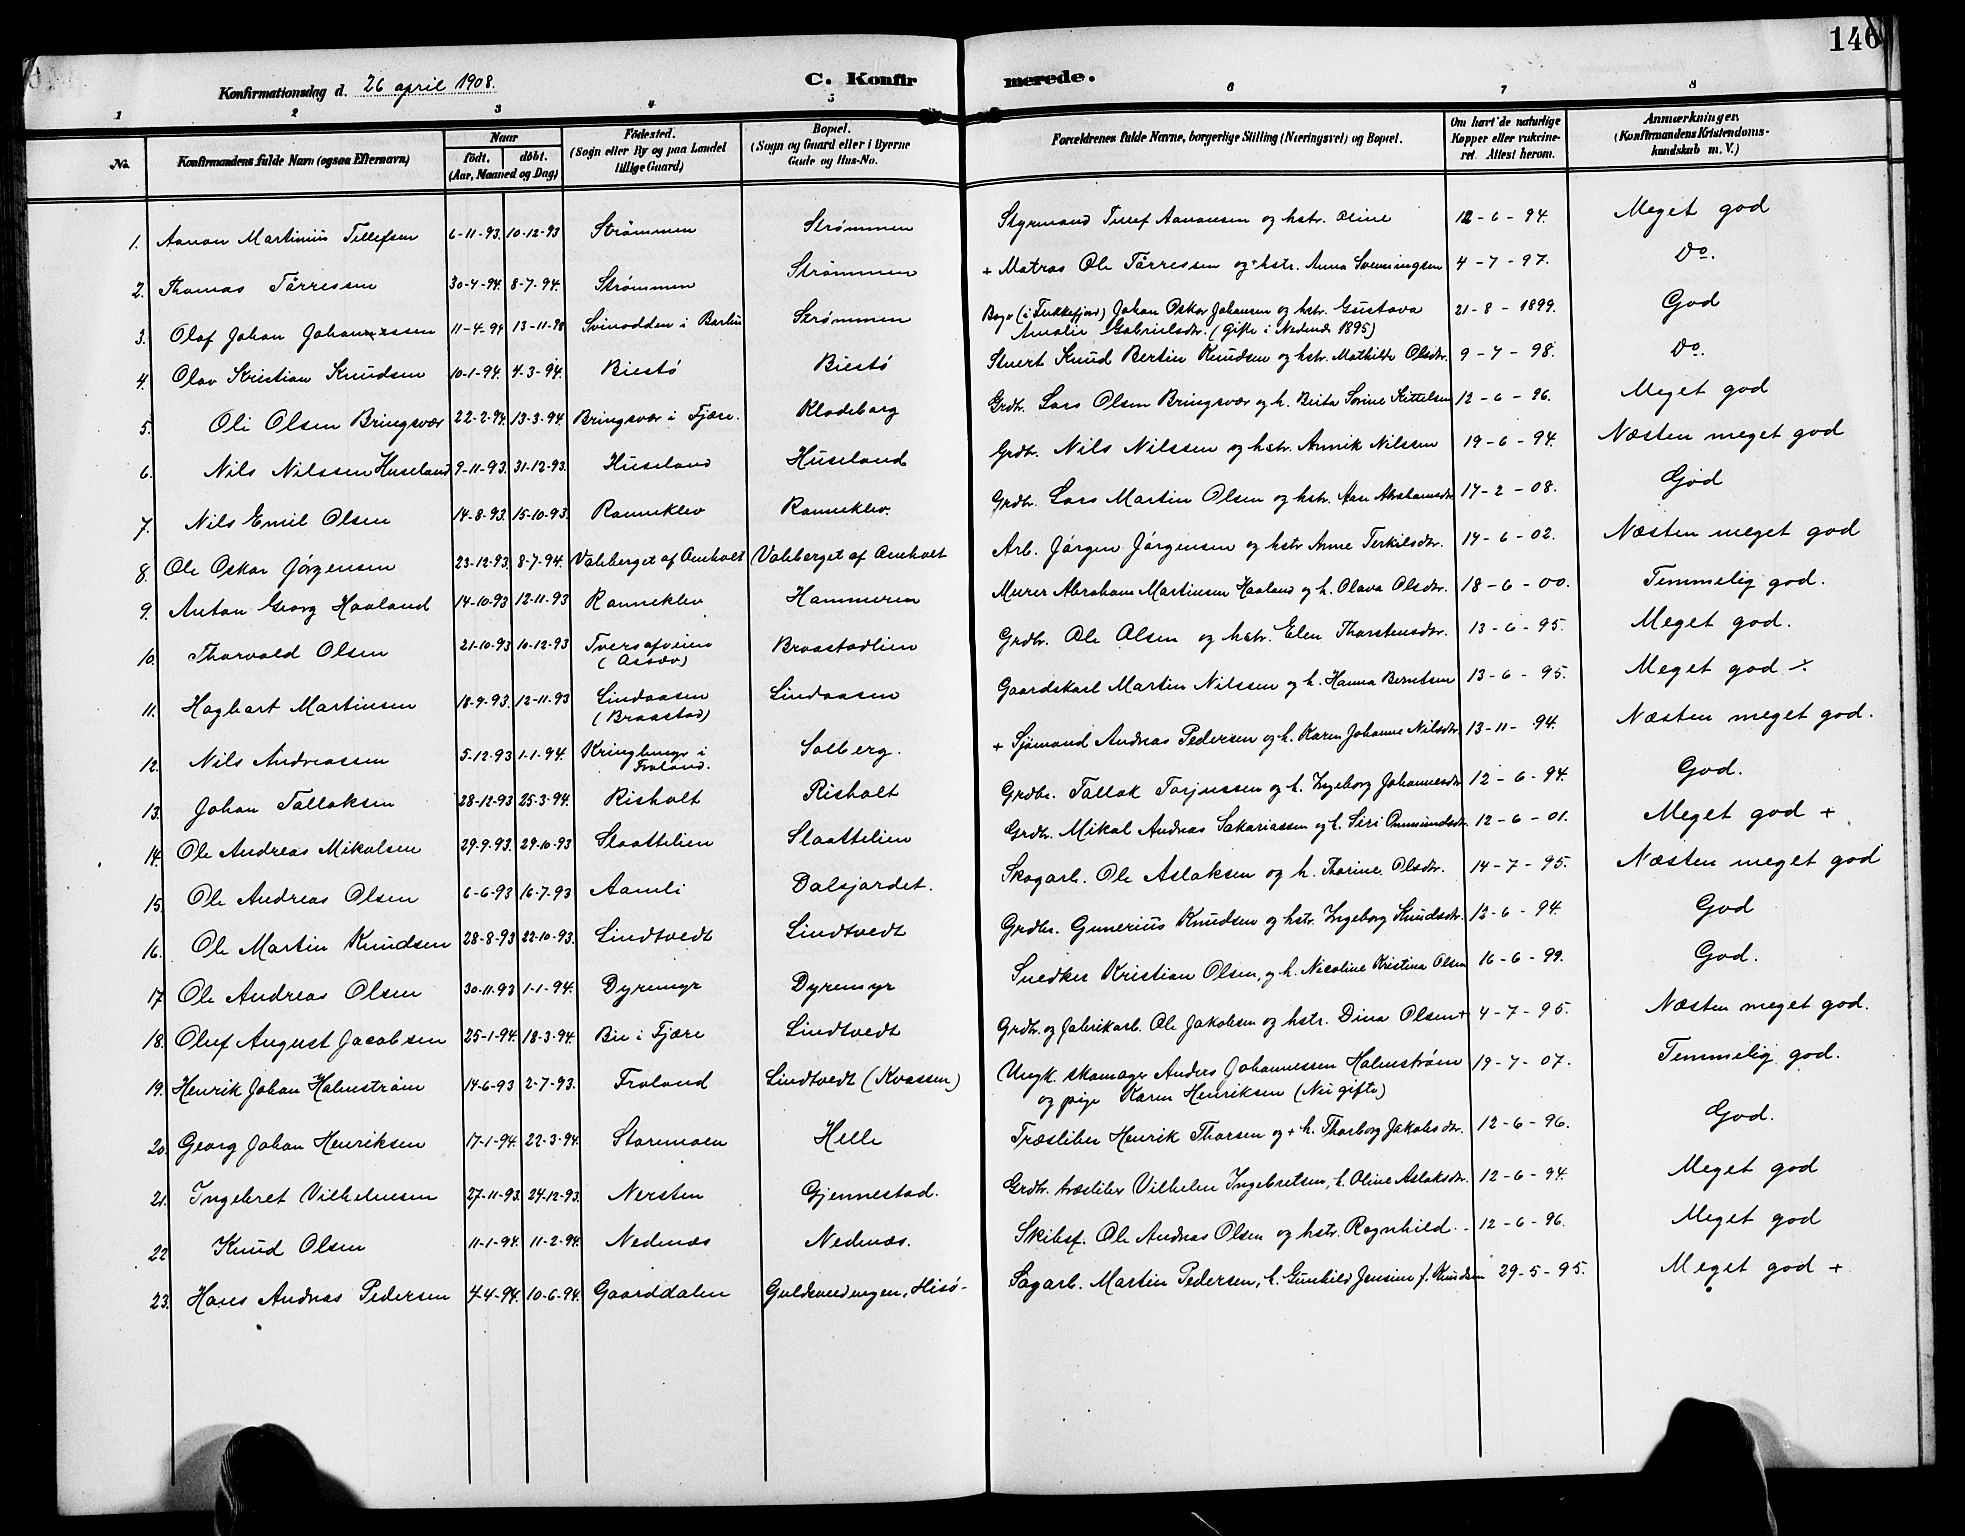 146
Konfirmationsdag d. 26 april 1908.
C. Konfirmerede.
1 2 3 4 5 6 7 8
No. | Konfirmandens fulde Navn (ogsaa Efternavn) | Naar født. døbt. (Aar, Maaned og Dag) | Fødested. (Sogn eller By og paa Landet tillige Gaard) | Bopæl. (Sogn og Gaard eller i Byerne Gade og Hus-No. | Forældrenes fulde Navne, borgerlige Stilling (Næringsvei) og Bopæl. | Om havt de naturlige Kopper eller vakcineret. Attest herom. | Anmærkninger. (Konfirmandens Kristendomskundskab m. V.)
1. Aanon Martinius Tellefsen 6-11-93. 10-12-93 Strømmen Strømmen Styrmand Tellef Aanonsen og hstr. Oline 12-6-94. Meget god
2. Thomas Tørressen 30-4-94. 8-7-94. Strømmen Strømmen + Matros Ole Tørressen og + hstr. Anna Svenningsen 4-7-97. Do.
3. Olaf Johan Johannessen 11-4-94 13-11-98 Svinodden i Barbu Strømmen (i Flekkefjord) Johan Oskar Johansen og hstr. Gustava
Amalie Gabrielsdtr. (Gifte i Nedenæs 1895) 21-8-1899. God
4. Olav Kristian Knudsen 10-1-94. 4-3-94. Biestø Biestø Stuert Knud Bertin Knudsen og hstr. Mathilde Olsdtr. 9-7-98. Do.
5. Ole Olsen Bringsvær 22-2-94. 13-3-94. Bringsvær i Fjære. Klodeborg Grdbr. Lars Olsen Bringsvær og h. Berta Sorine Kittelsen 12-6-96. Meget god
6. Nils Nilssen Huseland 9-11-93. 31-12-93. Huseland Huseland Grdbr. Nils Nilssen og hstr. Annik Nilssen 19-6-94. Næsten meget god
7. Nils Emil Olsen 14-8-93. 15-10-93. Ranneklev Ranneklev. Grdbr. Lars Martin Olsen og hstr. Aase Abrahamsdtr 17-2-08. God
8. Ole Oskar Jørgensen 23-12-93. 8-7-94. Valeberget af Omholt Valeberget af Omholt Arb. Jørgen Jørgensen og hstr Anne Terkilsdtr. 14-6-02. Næsten meget god
9. Anton Georg Haaland 14-10-93 12-11-93 Ranneklev Hammeren Murer Abraham Martinsen Haaland og h. Olava Olsdtr. 18-6-00. Temmelig god.
10. Thorvald Olsen 21-10-93 10-12-93 Braastadlien Grdbr. Ole Olsen og hstr. Elen Thorstensdtr. 13-6-95. Meget god.
11. Hagbart Martinsen 18-9-93. 12-11-93 Lindaasen
(Braastad) Lindaasen Gaardskarl Martin Nilssen og h. Hanna Berntsen 13-6-95. Meget god
12. Nils Andreassen 5-12-93 1-1-94. Kringlemyr i
Froland. Solberg. + Sjømand Andreas Pedersen og h. Karen Johanne Nilsdtr 13-11-94. Næsten meget god.
13. Johan Tallaksen 28-12-93 25-3-94. Risholt Risholt Grdbr. Tallak Torjussen og h. Ingeborg Johannesdtr 12-6-94. God.
14. Ole Andreas Mikalsen 29-9-93. 29-10-93 Slaattelien Slaattelien Grdbr. Mikal Andreas Sakariassen og h. Siri Ommundsdtr. 12-6-01. Meget god +
15. Ole Andreas Olsen 6-6-93 16-7-93 Aamli Dalsjordet. Skogarb. Ole Aslaksen og h. Thorine Olsdtr. 14-7-95. Næsten meget god
16. Ole Martin Knudsen 28-8-93 22-10-93. Lindtvedt Lindtvedt Grdbr. Gunerius Knudsen og hstr. Ingeborg Knudsdtr. 12-6-94. God
17. Ole Andreas Olsen 30-11-93 1-1-94. Dyremyr Dyremyr Snedker Kristian Olsen, og h. Nicoline Kristina Olsen 16-6-99. God.
18. Oluf August Jacobsen 25-1-94. 18-3-94. Bie i Fjære Lindtvedt Grdbr. og fabrikarb. Ole Jakobsen og hstr. Dina Olsen + 4-7-95. Næsten meget god.
19. Henrik Johan Holmstrøm 14-6-93 2-7-93. Froland Lindtvedt (Kvassen) Ungk. skomager Anders Johannessen Holmstrøm
og pige Karen Henriksen (Nu gifte) 19-7-07. Temmelig god.
20. Georg Johan Henriksen 17-1-94. 22-3-94. Storemoen Helle Træsliber Henrik Thorsen og + h. Thorborg Jakobsdtr. 12-6-96. God.
21. Ingebret Vilhelmsen 27-11-93. 24-12-93. Nersten Gjennestad. Grdbr. træsliber Vilhelm Ingebretsen, h. Oline Aslaksdtr. 12-6-94. Meget god
22 Knud Olsen 11-1-94. 11-2-94. Nedenæs Nedenæs. Skibsf. Ole Andreas Olsen og hstr. Ragnhild. 12-6-96. Meget god
23. Hans Andreas Pedersen 4-4-94. 10-6-94. Gaarddalen Guldsmedengen, Hisø- Sagarb. Martin Pedersen, h. Gunhild Jensine f. Knudsen 29-5-95. Meget god +